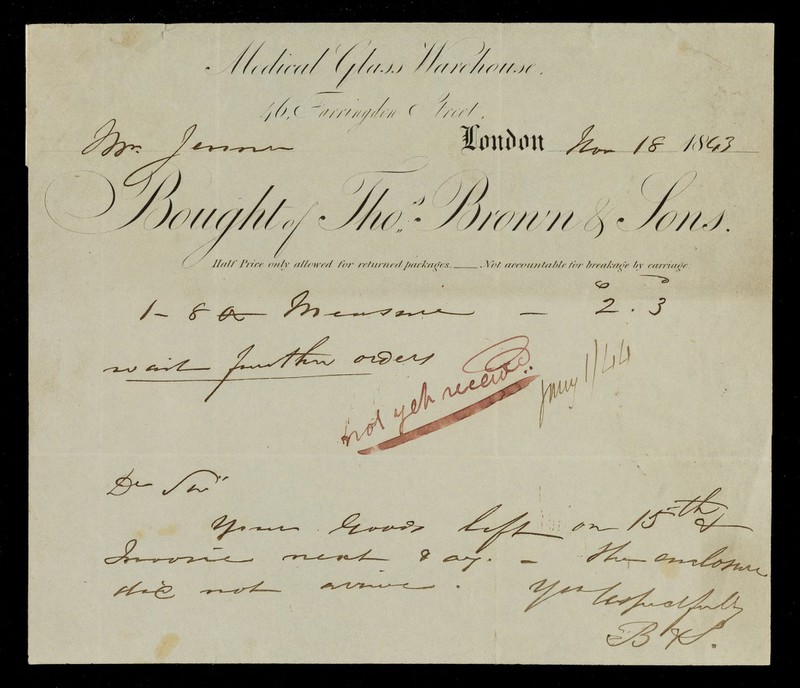 Medical Glass Warehouse.
46, Farringdon Street.
Mr. Jenner London Nov 18 1843
Bought of Thos. Brown & Sons.
Half Price only allowed for returned packages. Not accountable for breakage by carriage.
1 - 8 oz Measure - 2 . 3
wait further orders
not yet received.
Jany 1/44
Dr Sir
Your Goods left on 15th &
Invoice next day. - the enclosure
did not arrive. Yrs Respectfully
B & S.